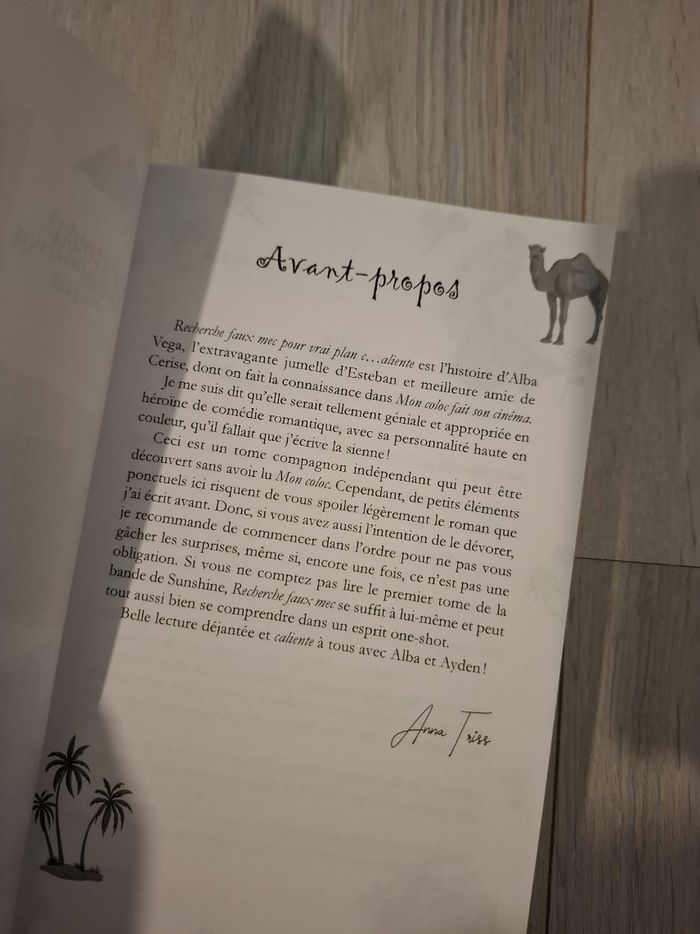 Avant-propos
Recherche faux mec pour vrai plan c…aliente est l'histoire d'Alba
Vega, l'extravagante jumelle d'Esteban et meilleure amie de
Cerise, dont on fait la connaissance dans Mon coloc fait son cinéma.
Je me suis dit qu'elle serait tellement géniale et appropriée en
héroïne de comédie romantique, avec sa personnalité haute en
couleur, qu'il fallait que j'écrive la sienne !
Ceci est un tome compagnon indépendant qui peut être
découvert sans avoir lu Mon coloc. Cependant, de petits éléments
ponctuels ici risquent de vous spoiler légèrement le roman que
j'ai écrit avant. Donc, si vous avez aussi l'intention de le dévorer,
je recommande de commencer dans l'ordre pour ne pas vous
gâcher les surprises, même si, encore une fois, ce n'est pas une
obligation. Si vous ne comptez pas lire le premier tome de la
bande de Sunshine, Recherche faux mec se suffit à lui-même et peut
tout aussi bien se comprendre dans un esprit one-shot.
Belle lecture déjantée et caliente à tous avec Alba et Ayden !
Anna Triss